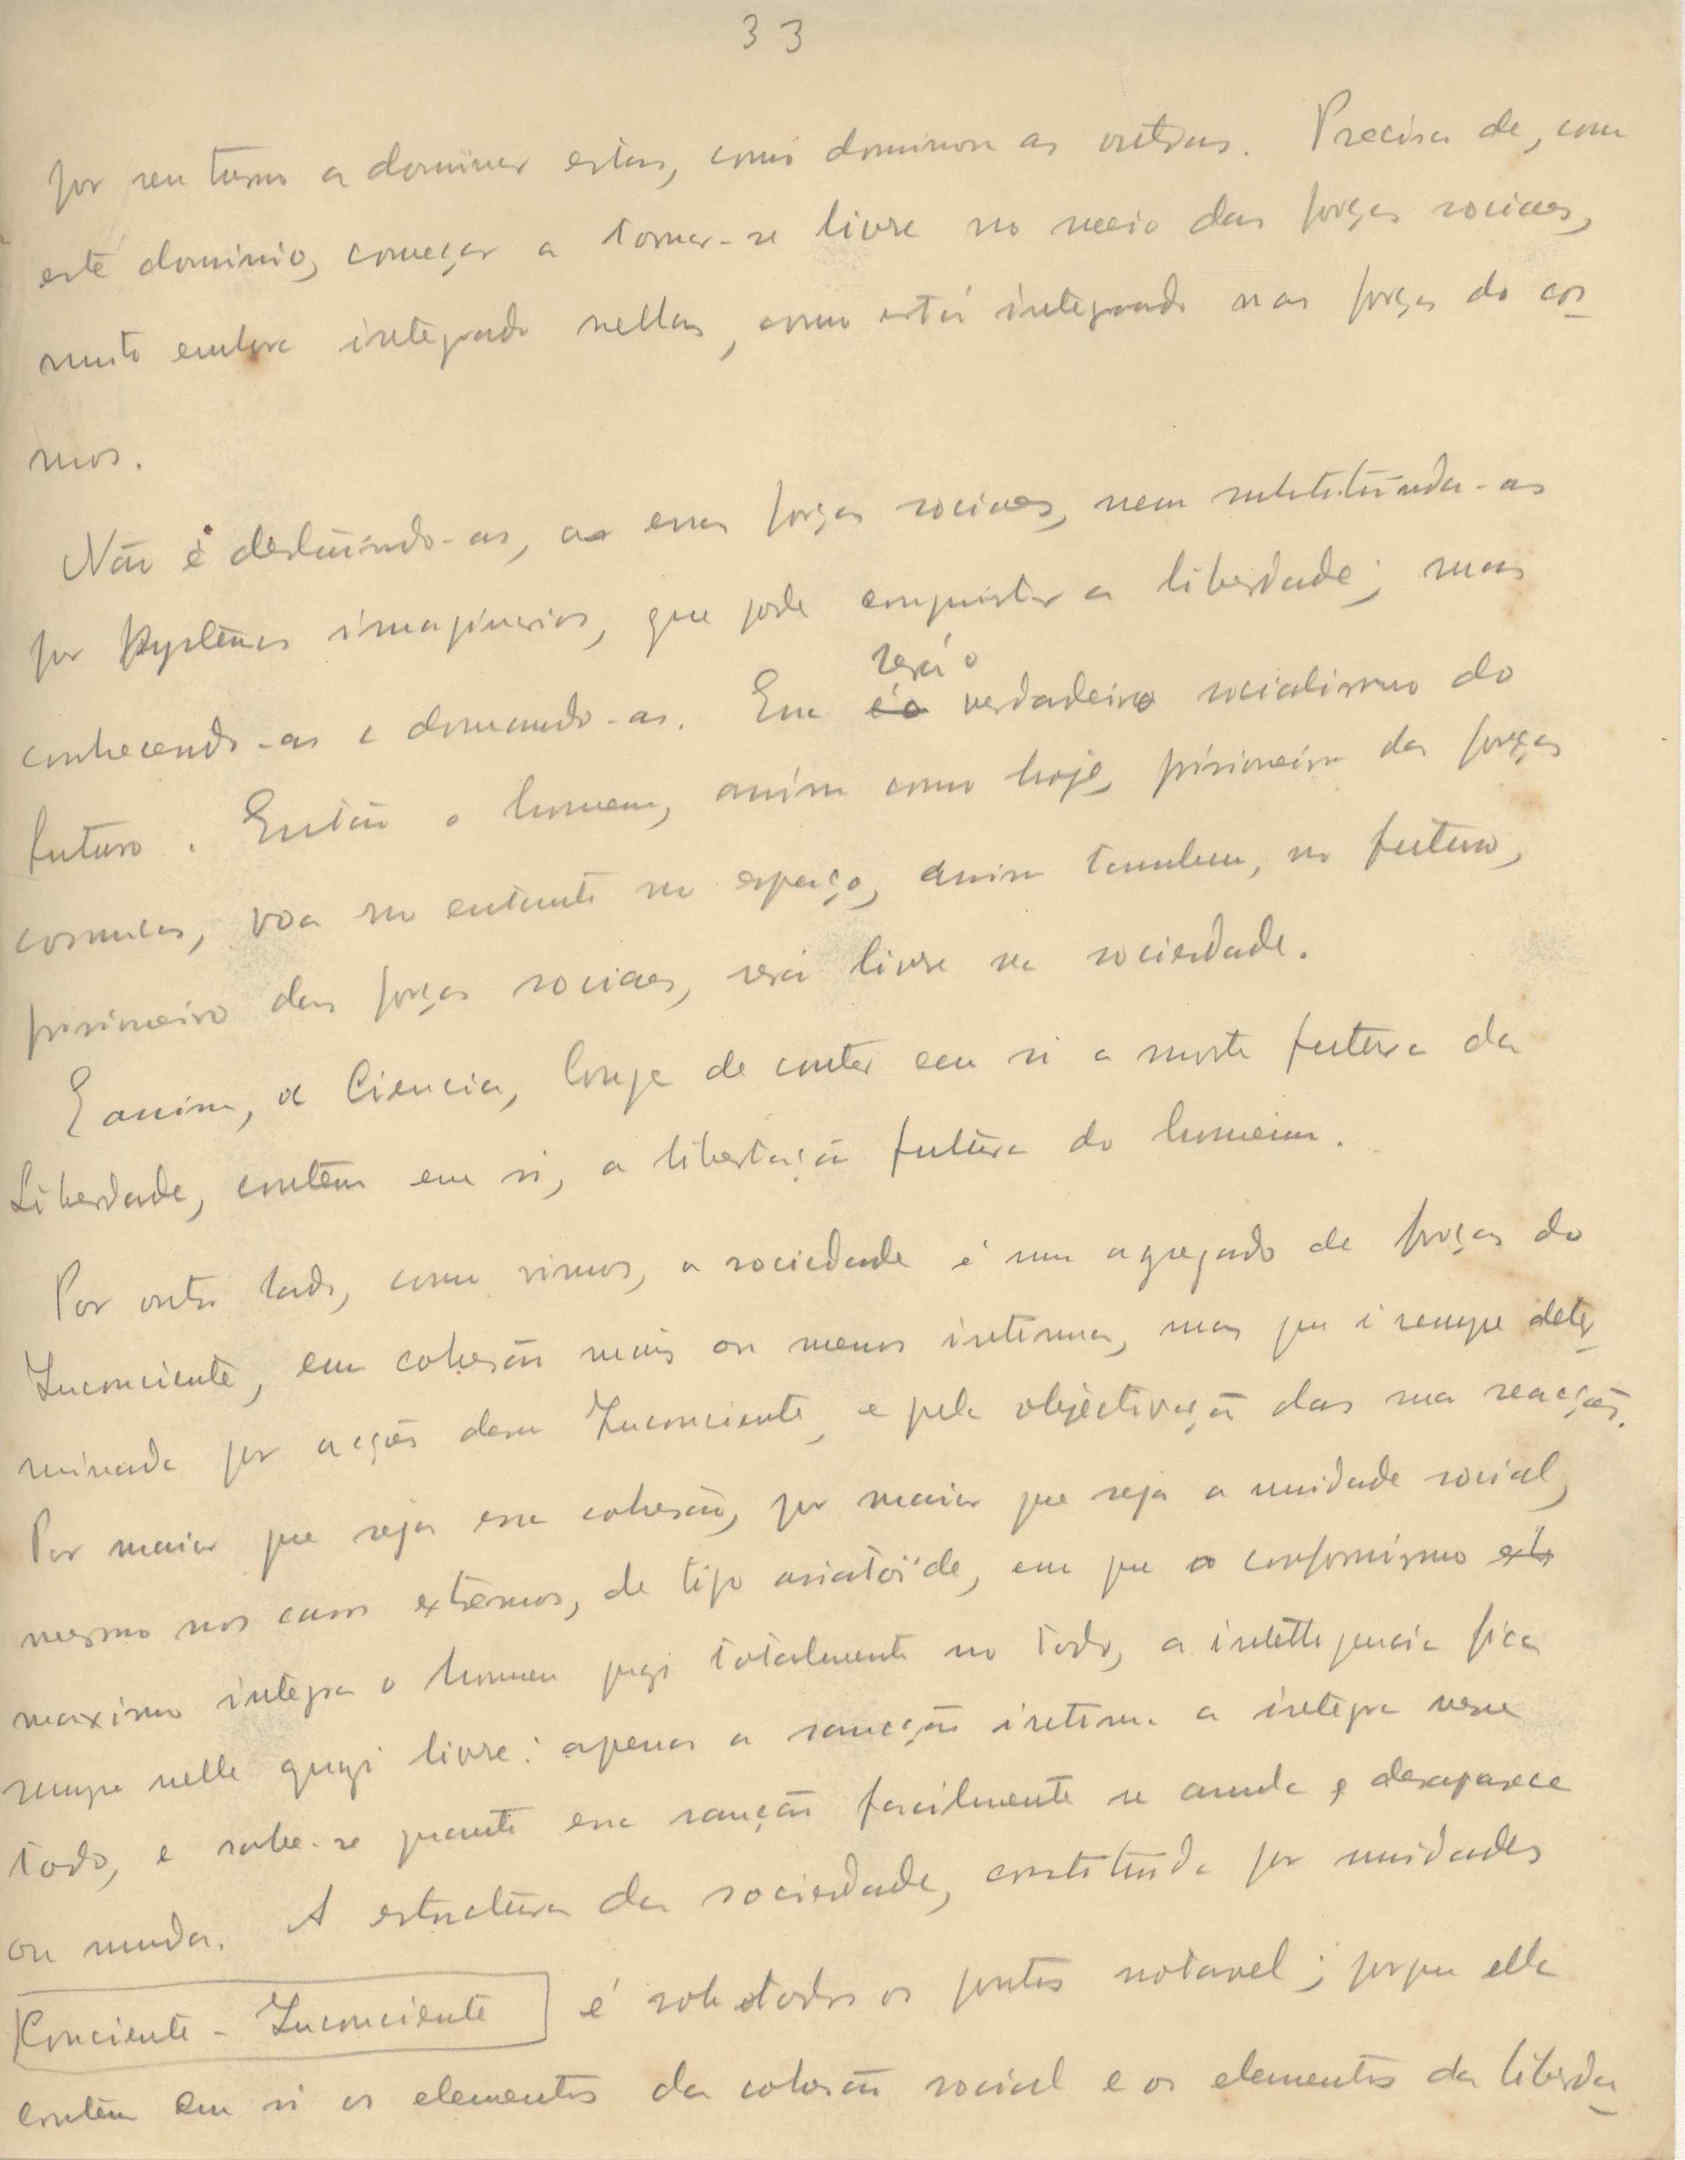 33
por seu turno a dominar estas, como dominou as outras. Precisa de, com
este dominio, começar a tornar-se livre no meio das forças sociaes,
muito embora integrado nellas, como está integrado nas forças do cos
mos.
Não é destruindo-as, as essas forças sociaes, nem substituindo-as
por systemas imaginarios, que pode conquistar a liberdade; mas
conhecendo-as e domando-as. Esse é o será o verdadeiro socialismo do
futuro. Então o homem, assim como hoje, prisioneiro das forças
cosmicas, voa no entanto no espaço, assim tambem, no futuro,
prisioneiro das forças sociaes, será livre na sociedade.
E assim, a Ciencia, longe de conter em si a morte futura da
Liberdade, contêm em si, a libertação futura do homem.
Por outro lado, como vimos, a sociedade é um agregado de forças do
Inconciente, em cohesão mais ou menos intensa, mas que é sempre deter
minada por acções desse Inconciente, e pela objectivação das sua reacções.
Por maior que seja essa cohesão, por maior que seja a unidade social,
mesmo nos casos extremos, de tipo asiatoïde, em que o conformismo
maximo integra o homem quasi totalmente no todo, a intelligencia fica
sempre nelle quasi livre: apenas a sancção interna a integra nesse
todo, e sabe-se quanto essa sancção facilmente se anula e desaparece
ou muda. A estructura da sociedade, constituida por unidades
Conciente - Inconciente é sob todos os pontos notavel; porque ella
contêm em si os elementos da cohesão social e os elementos da liberda